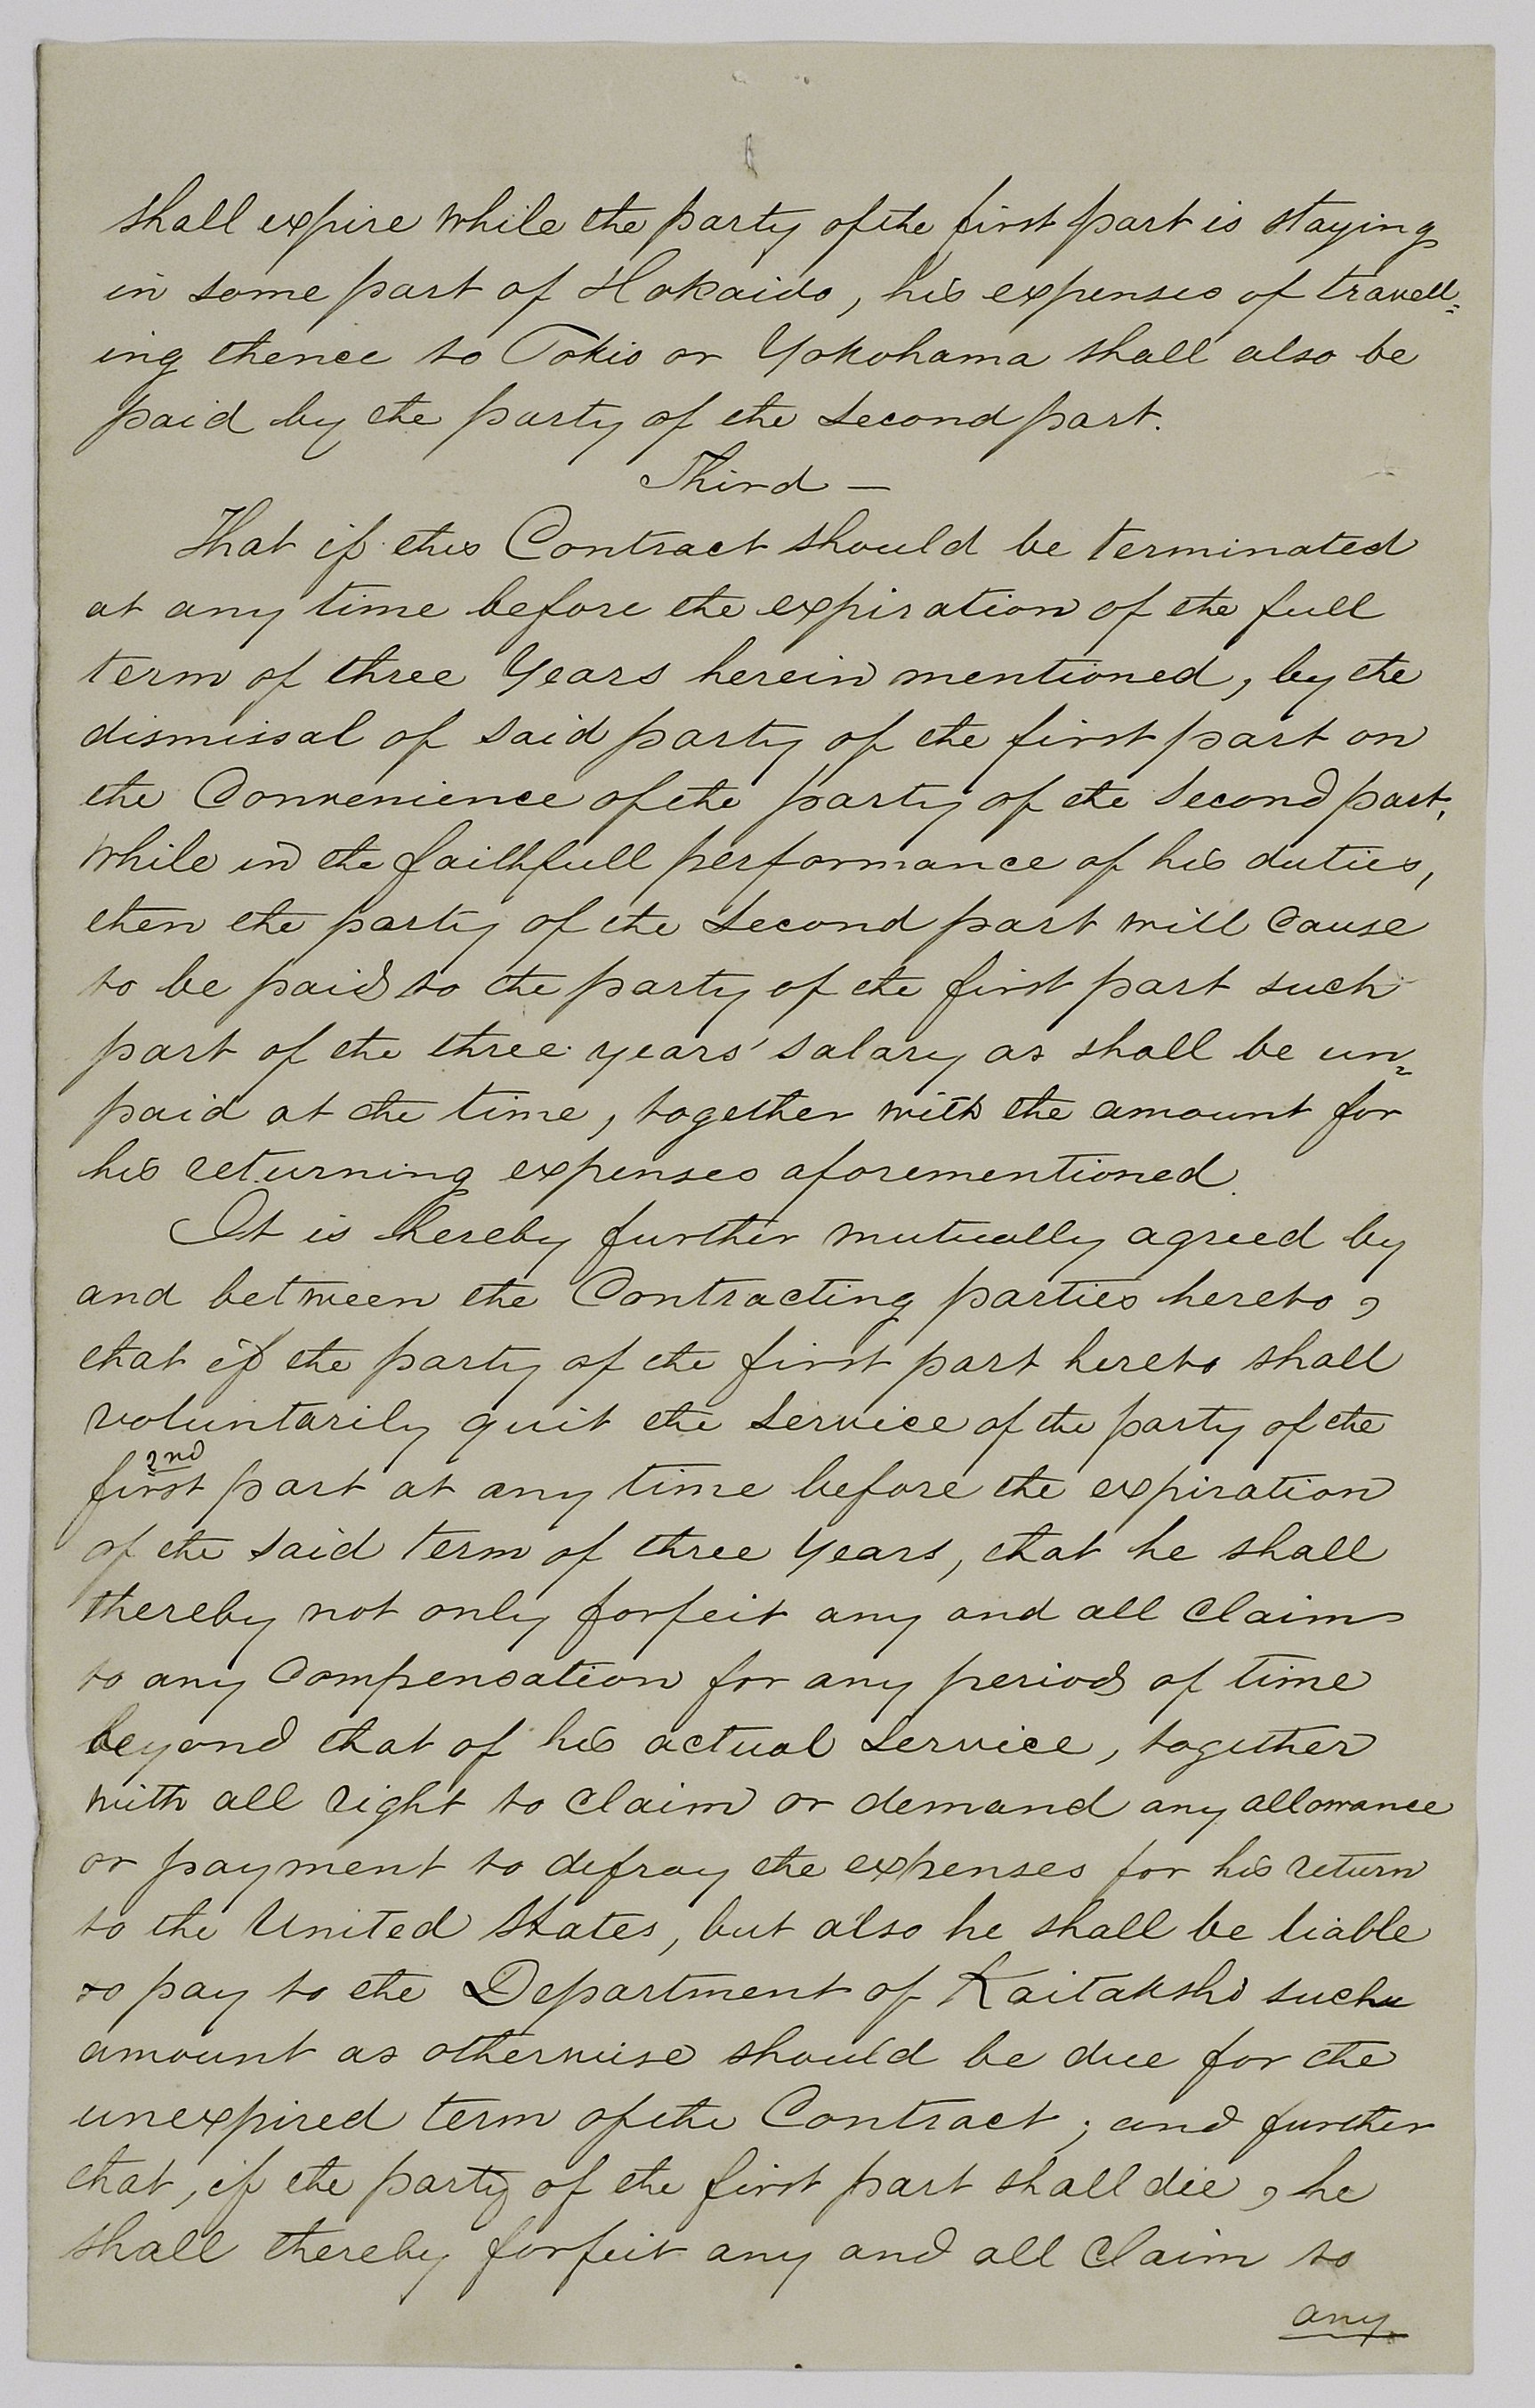 shall expire while the party of the first part is staying
in some part of Hokaido, his expenses of travell=
ing thence to Tokio or Yokohama shall also be
paid by the party of the second part.
Third —
That if this Contract should be terminated
at any time before the expiration of the full
term of three Years herein mentioned, by the
dismissal of said party of the first part on
the Convenience of the party of the Second part,
while in the faithfull performance of his duties,
then the party of the Second part will cause
to be paid to the party of the first part such
part of the three years' salary as shall be un=
paid at the time, together with the amount for
his returning expenses aforementioned.
It is hereby further mutually agreed by
and between the Contracting parties hereto,
that if the party of the first part hereto shall
voluntarily quit the Service of the party of the
2nd
first part at any time before the expiration
of the said term of three Years, that he shall
thereby not only forfeit any and all Claims
to any Compensation for any period of time
beyond that of his actual Service, together
with all right to claim or demand any allowance
or payment to defray the expenses for his return
to the United States, but also he shall be liable
to pay to the Department of Kaitakshi such
amount as otherwise should be due for the
unexpired term of the Contract; and further
that, if the party of the first part shall die, he
shall thereby forfeit any and all Claim to
any